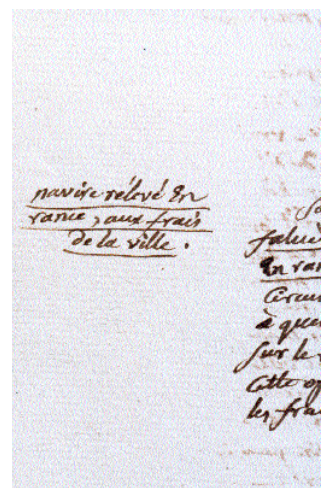 navire rélevé En
rance, aux frais
de la ville.
En ran
à que
sur le
Cette op
les frai